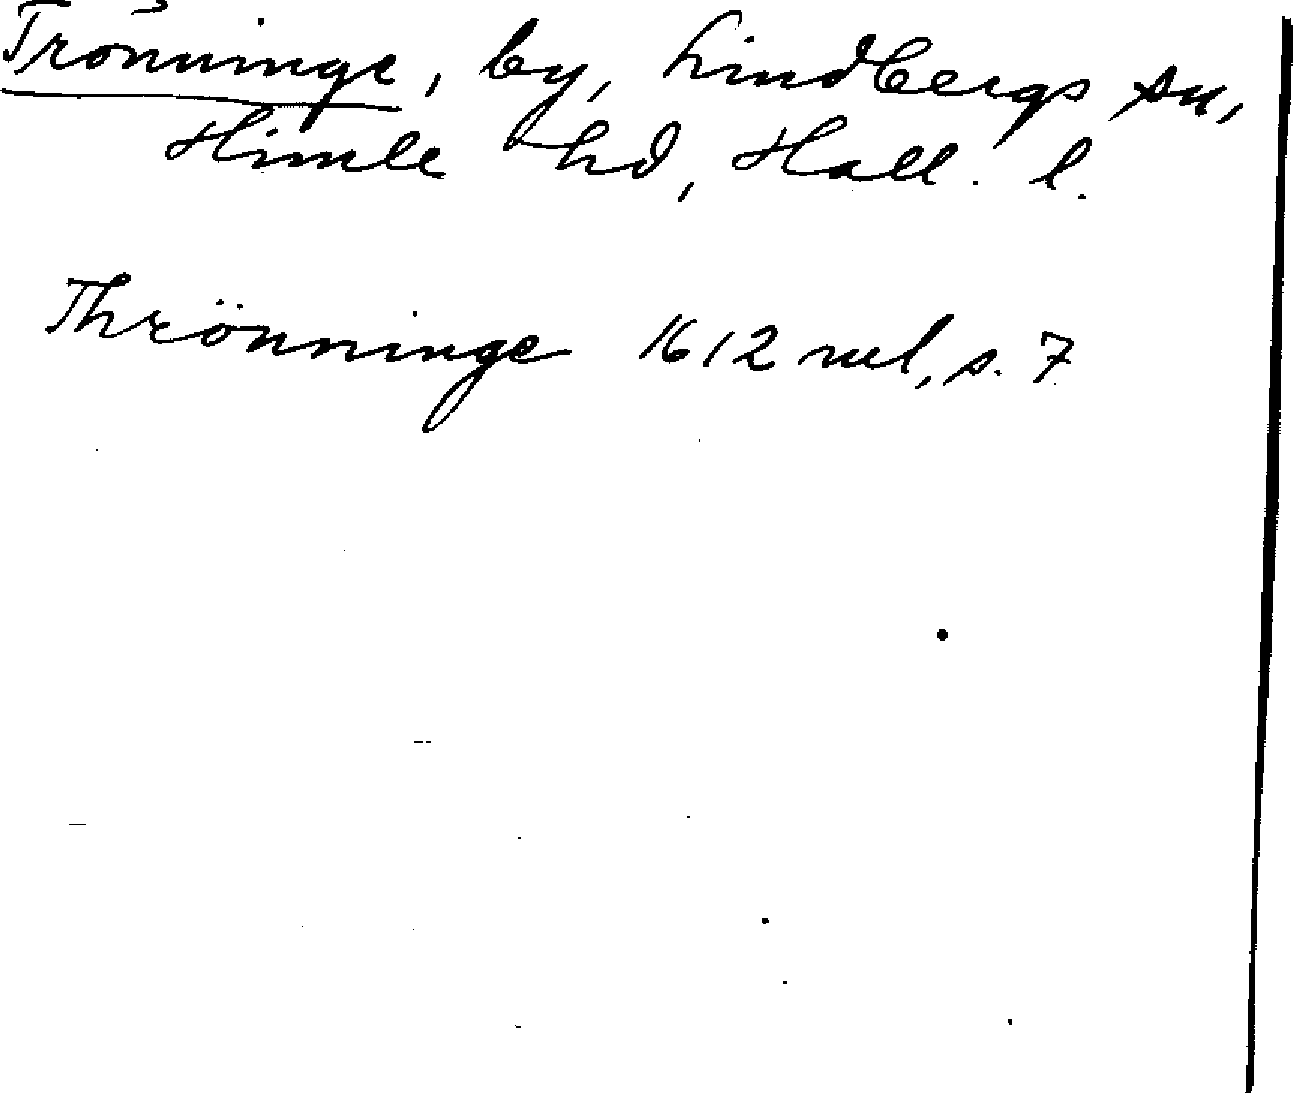 Trönninge, by, Lindbergs sn,
Himle hd, Hall. l.
Thrönninge 1612 rul, s. 7